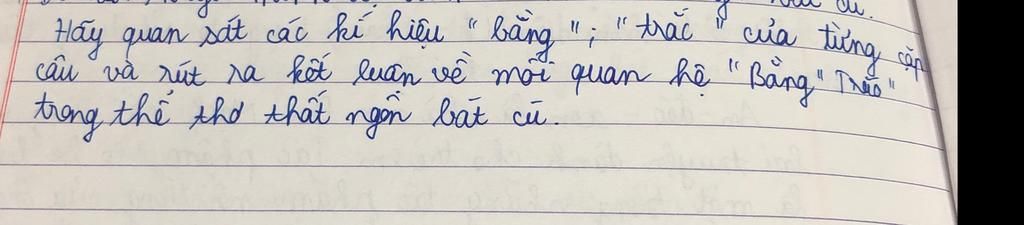 cú.
Hãy quan sát các kí hiệu "bằng"; "trắc" của từng cặp
câu và rút ra kết luận về mối quan hệ "Bằng" Trắc"
trong thể thơ thất ngôn bát cú.